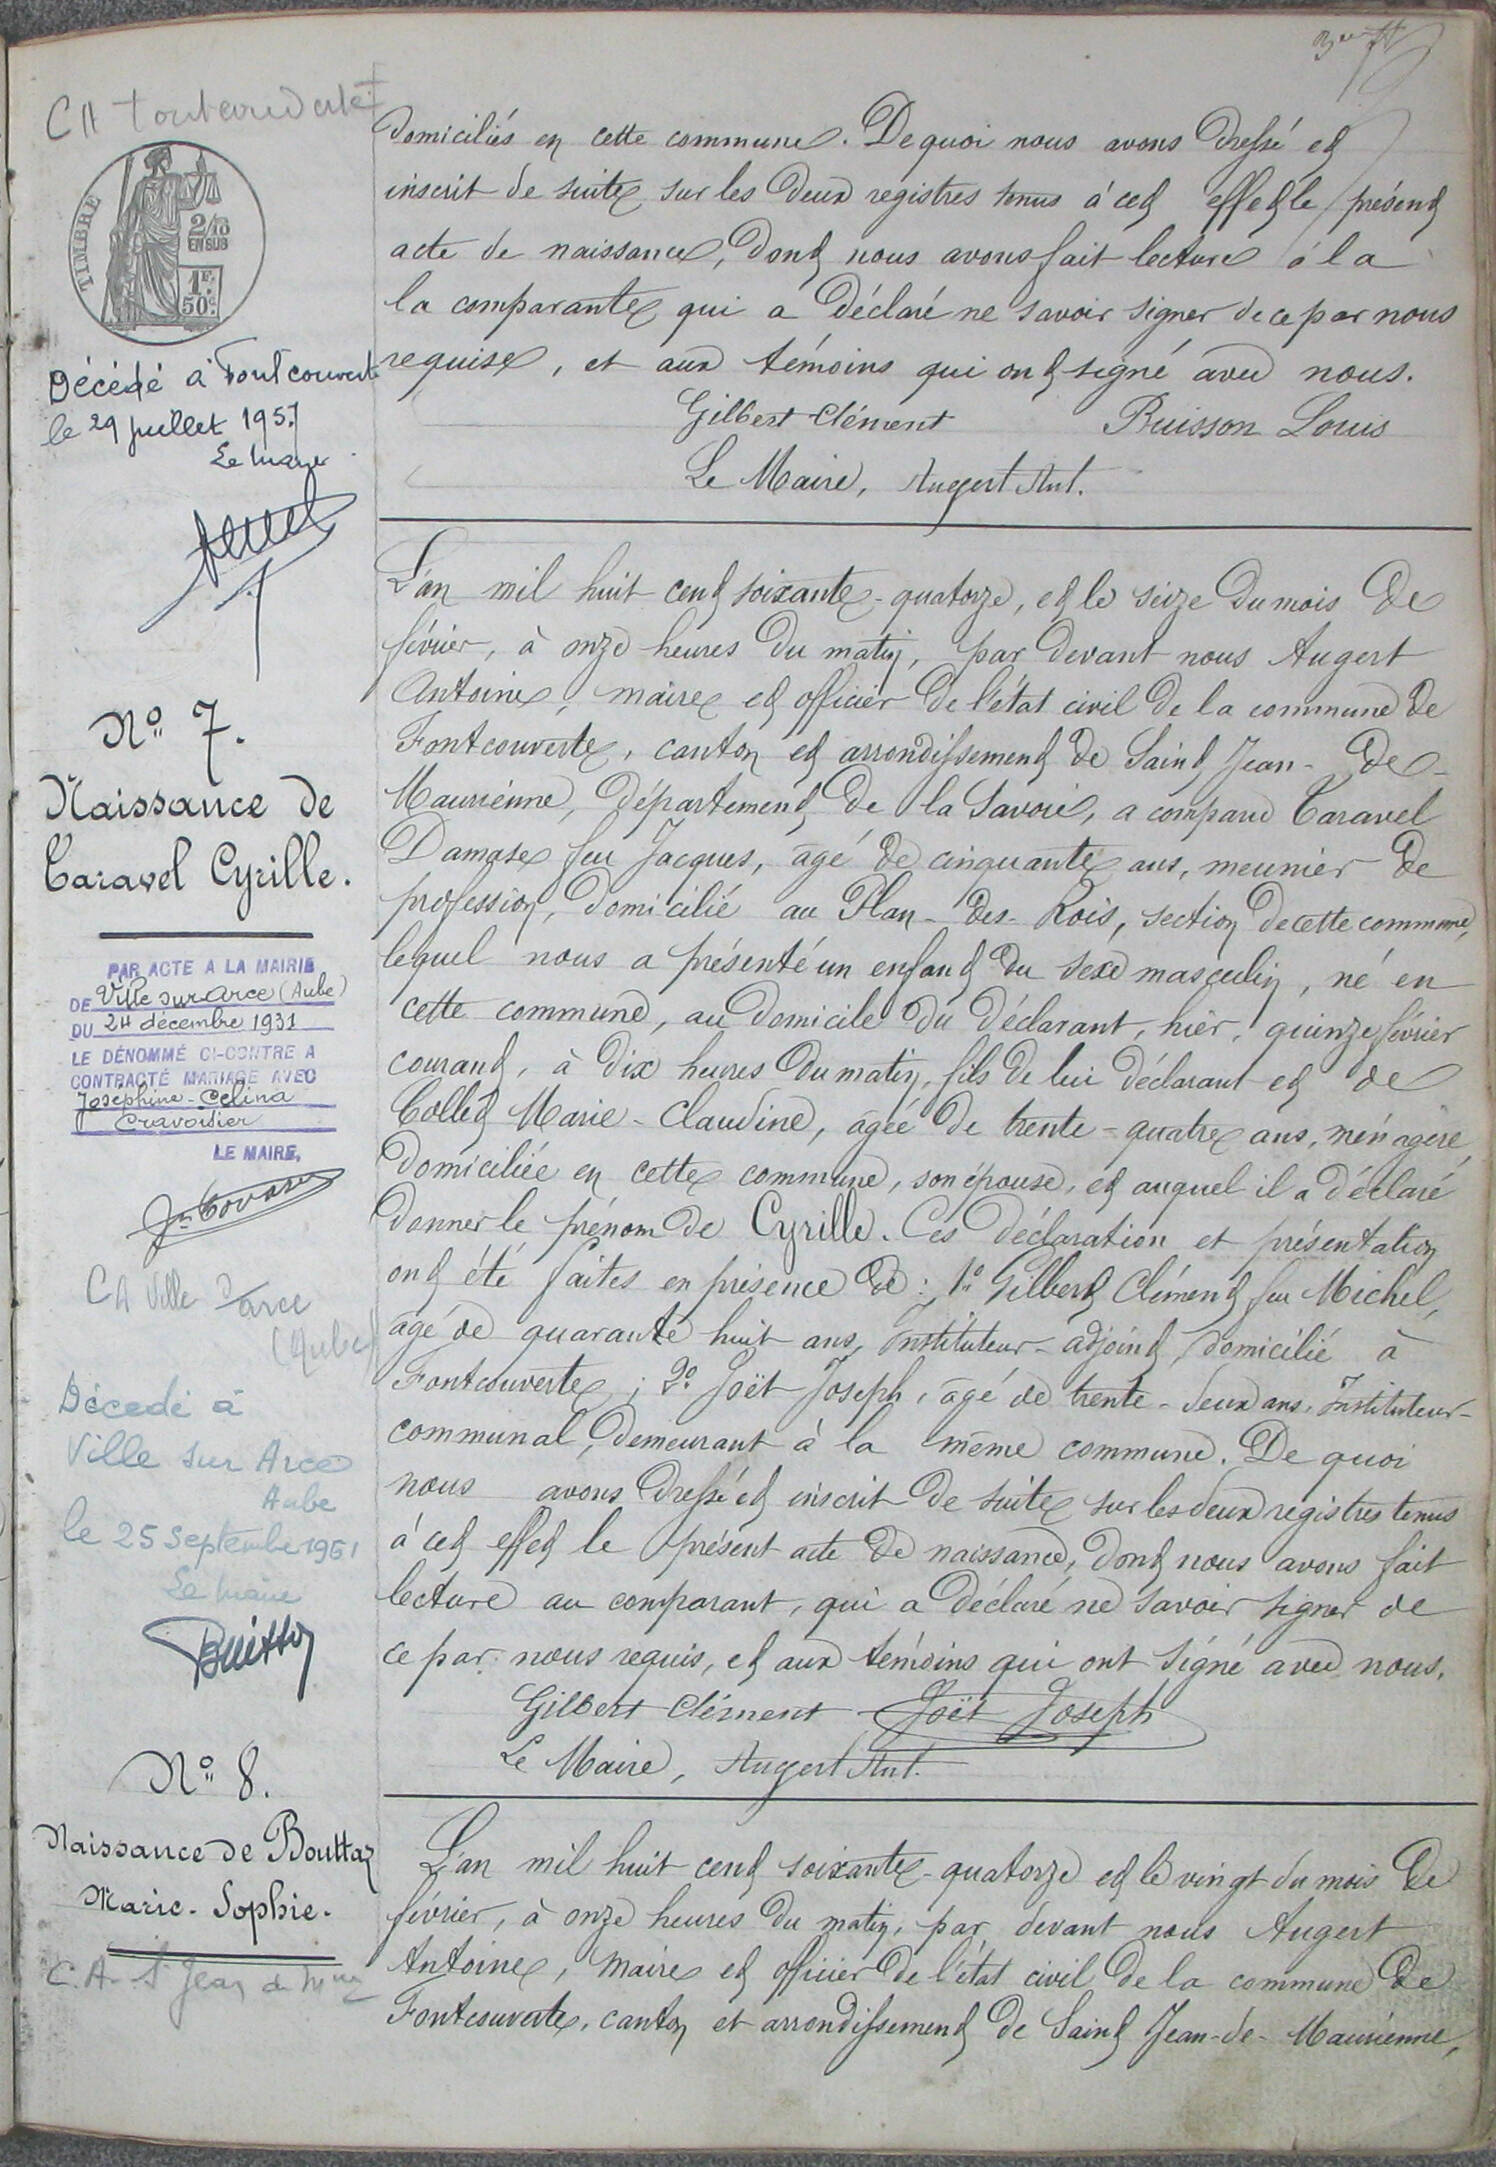 domiciliés en cette commune. De quoi nous avons dressé et
inscrit de suite sur les deux registres tenus à cet effet le présent
acte de naissance, dont nous avons fait lecture à la
la comparante qui a déclaré ne savoir signer de ce par nous
requise, et aux témoins qui ont signé avec nous.
Gilbert Clément Buisson Louis
Le Maire, Augert Ant.
TIMBRE
2/10
EN SUS
1F.
50c.
Décédé à Fontcouverte
le 29 juillet 1957
Le maire
No 7.
Naissance de
Taravel Cyrille.
PAR ACTE A LA MAIRIE
DE Ville sur Arce (Aube)
DU 24 décembre 1931
LE DÉNOMMÉ CI-CONTRE A
CONTRACTÉ MARIAGE AVEC
Joséphine-Celina
Cravoisier
LE MAIRE,
CA Ville d'arce
(Aube)
Décédé à
Ville sur Arce
Aube
le 25 septembre 1951
Le maire
Buisson
L'an mil huit cent soixante-quatorze, et le seize du mois de
février, à onze heures du matin, par devant nous Augert
Antoine, maire et officier de l'état civil de la commune de
Fontcouverte, canton et arrondissement de Saint Jean-de-
Maurienne, département de la Savoie, a comparu Taravel
Damase feu Jacques, âgé de cinquante ans, meunier de
profession, domicilié au Plan-des-Rois, section de cette commune,
lequel nous a présenté un enfant du sexe masculin, né en
cette commune, au domicile du déclarant, hier, quinze février
courant, à dix heures du matin, fils de lui déclarant et de
Collet Marie-Claudine, âgée de trente-quatre ans, ménagère,
domiciliée en cette commune, son épouse, et auquel il a déclaré
donner le prénom de Cyrille. Ces déclaration et présentation
ont été faites en présence de: 1o Gilbert Clément feu Michel,
âgé de quarante huit ans, instituteur-adjoint, domicilié à
Fontcouverte; 2o Joët Joseph, âgé de trente-deux ans, Instituteur-
communal, demeurant à la même commune. De quoi
nous avons dressé et inscrit de suite sur les deux registres tenus
à cet effet le présent acte de naissance, dont nous avons fait
lecture au comparant, qui a déclaré ne savoir signer de
ce par nous requis, et aux témoins qui ont signé avec nous.
Gilbert Clément Joët Joseph
Le Maire, Augert Ant.
No 8.
Naissance de Bouttaz
Marie-Sophie.
C.A. St Jean de Mne
L'an mil huit cent soixante-quatorze et le vingt du mois de
février, à onze heures du matin, par devant nous Augert
Antoine, maire et officier de l'état civil de la commune de
Fontcouverte, canton et arrondissement de Saint Jean-de-Maurienne,